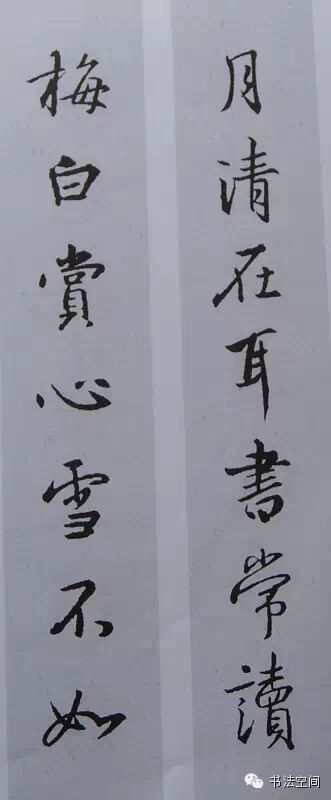 月清在耳書常讀
梅白賞心雪不如
书法空间